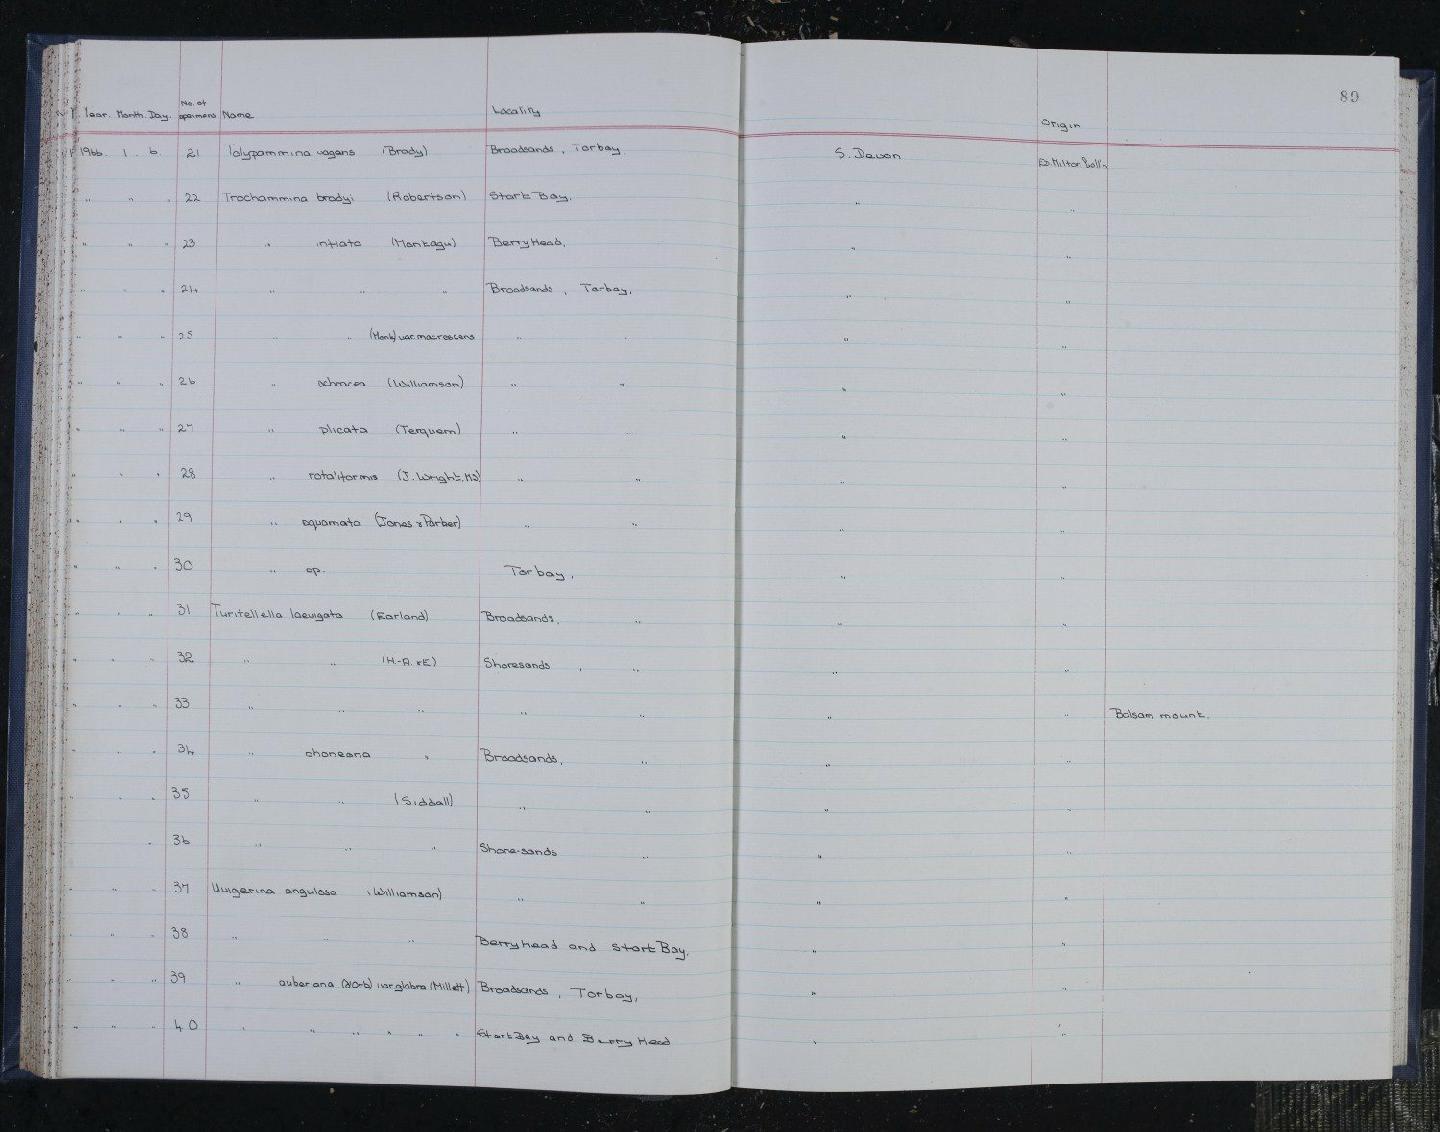 89
Year. Month. Day. No. of specimens Name Locality Origin
1966. 1 . 6. 21 Polypammina vagans (Brady) Broadsands, Torbay. S. Devon
" " " 22 Trochammina bradyi (Robertson) Start Bay. " "
" " " 23 " (Montagu) Berry Head. " "
" " " 24 " " " Broadsands, Torbay. " "
" " " 25 " " (Mont) var. macrescens " " " "
" " " 26 " (Williamson) " " " "
" " " 27 " plicata (Terquem) " " "
" " " 28 " rotaliformis (J. Wright. MS) " " " "
" " " 29 " squamata (Jones & Parker) " " " "
" " " 30 " sp. Torbay. " "
" " " 31 Turitellella laevigata (Earland) Broadsands, " " "
" " " 32 " " (H.-A. & E) Shoresands, " " "
" " " 33 " " " " " " " Balsam mount.
" " " 34 " shoneana " Broadsands, " " "
" " 35 " " (Siddall) " " " "
" 36 " " " Shore-sands " " "
" " " 37 Uvigerina angulosa (Williamson) " " " "
" " 38 " " " Berryhead and Start Bay. " "
" " " 39 " auberana (d'Orb) var glabra (Millett) Broadsands, Torbay. " "
" " " 40 " " " " " " Start Bay and Berry Head " "